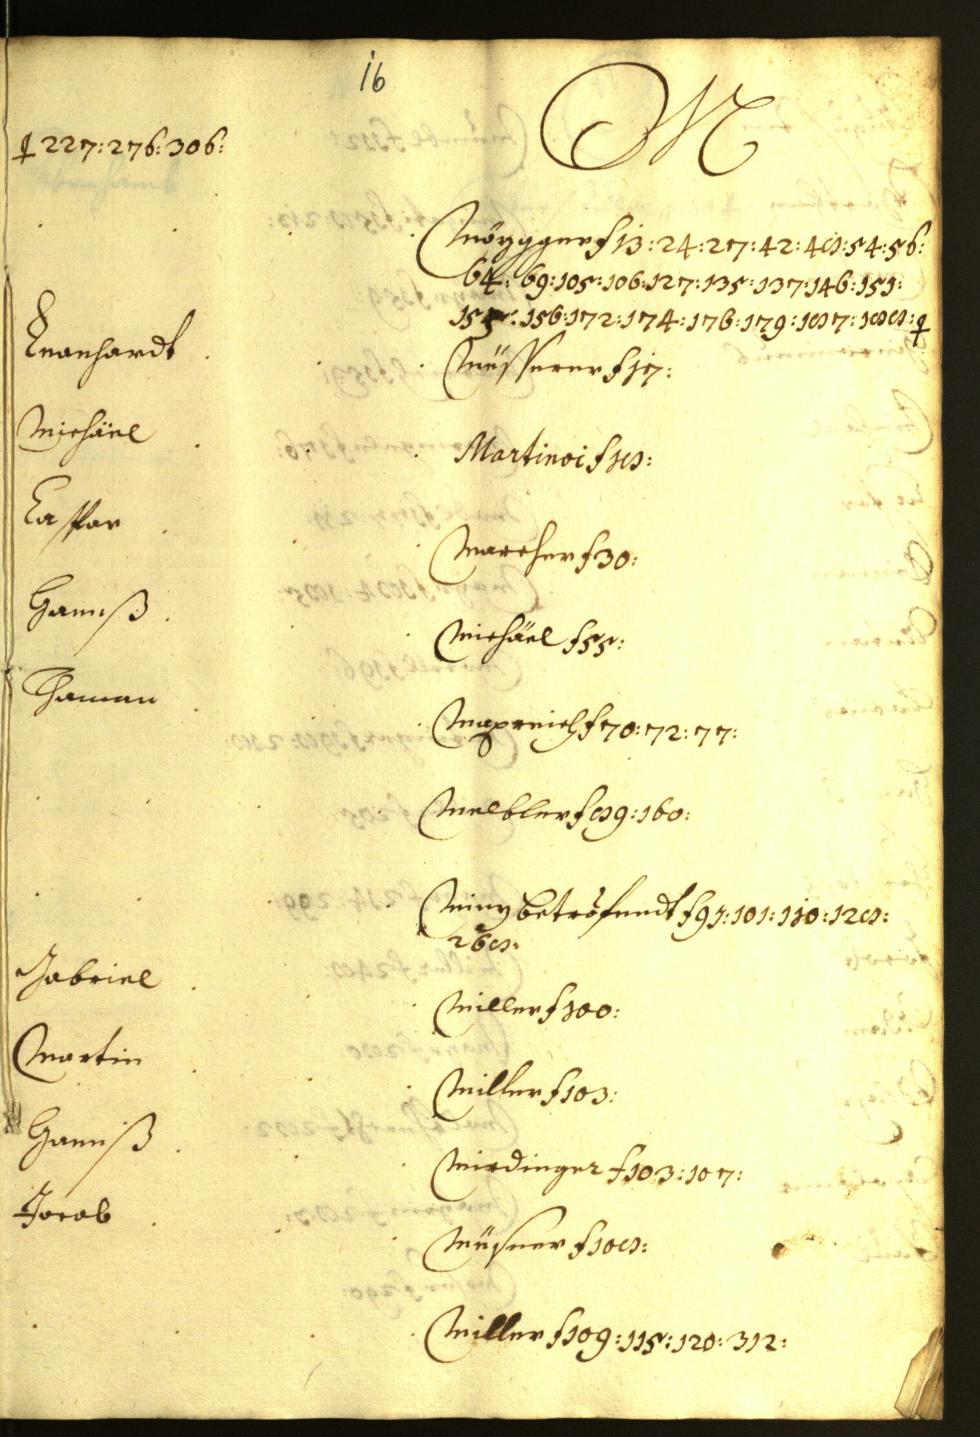 16
M
♀ 227: 276: 306:
f 13: 24: 27: 42: 48: 54: 56:
64: 69: 105: 106: 127: 135: 137: 146: 151:
155: 156: 172: 174: 176: 179: 187: 188: ♀
Leonhardt Müsserer f 17:
Michäel Martinoi f 18:
Caspar Marcher f 30:
Hannß Michäel f 55:
Thaman f 70: 72: 77:
Melbler f 89: 160:
betröfendt f 91: 101: 110: 128:
268:
Gabriel Miller f 100:
Martin Miller f 103:
Hannß Mirdinger f 103: 107:
Jacob Müsner f 108:
Miller f 109: 115: 120: 312: